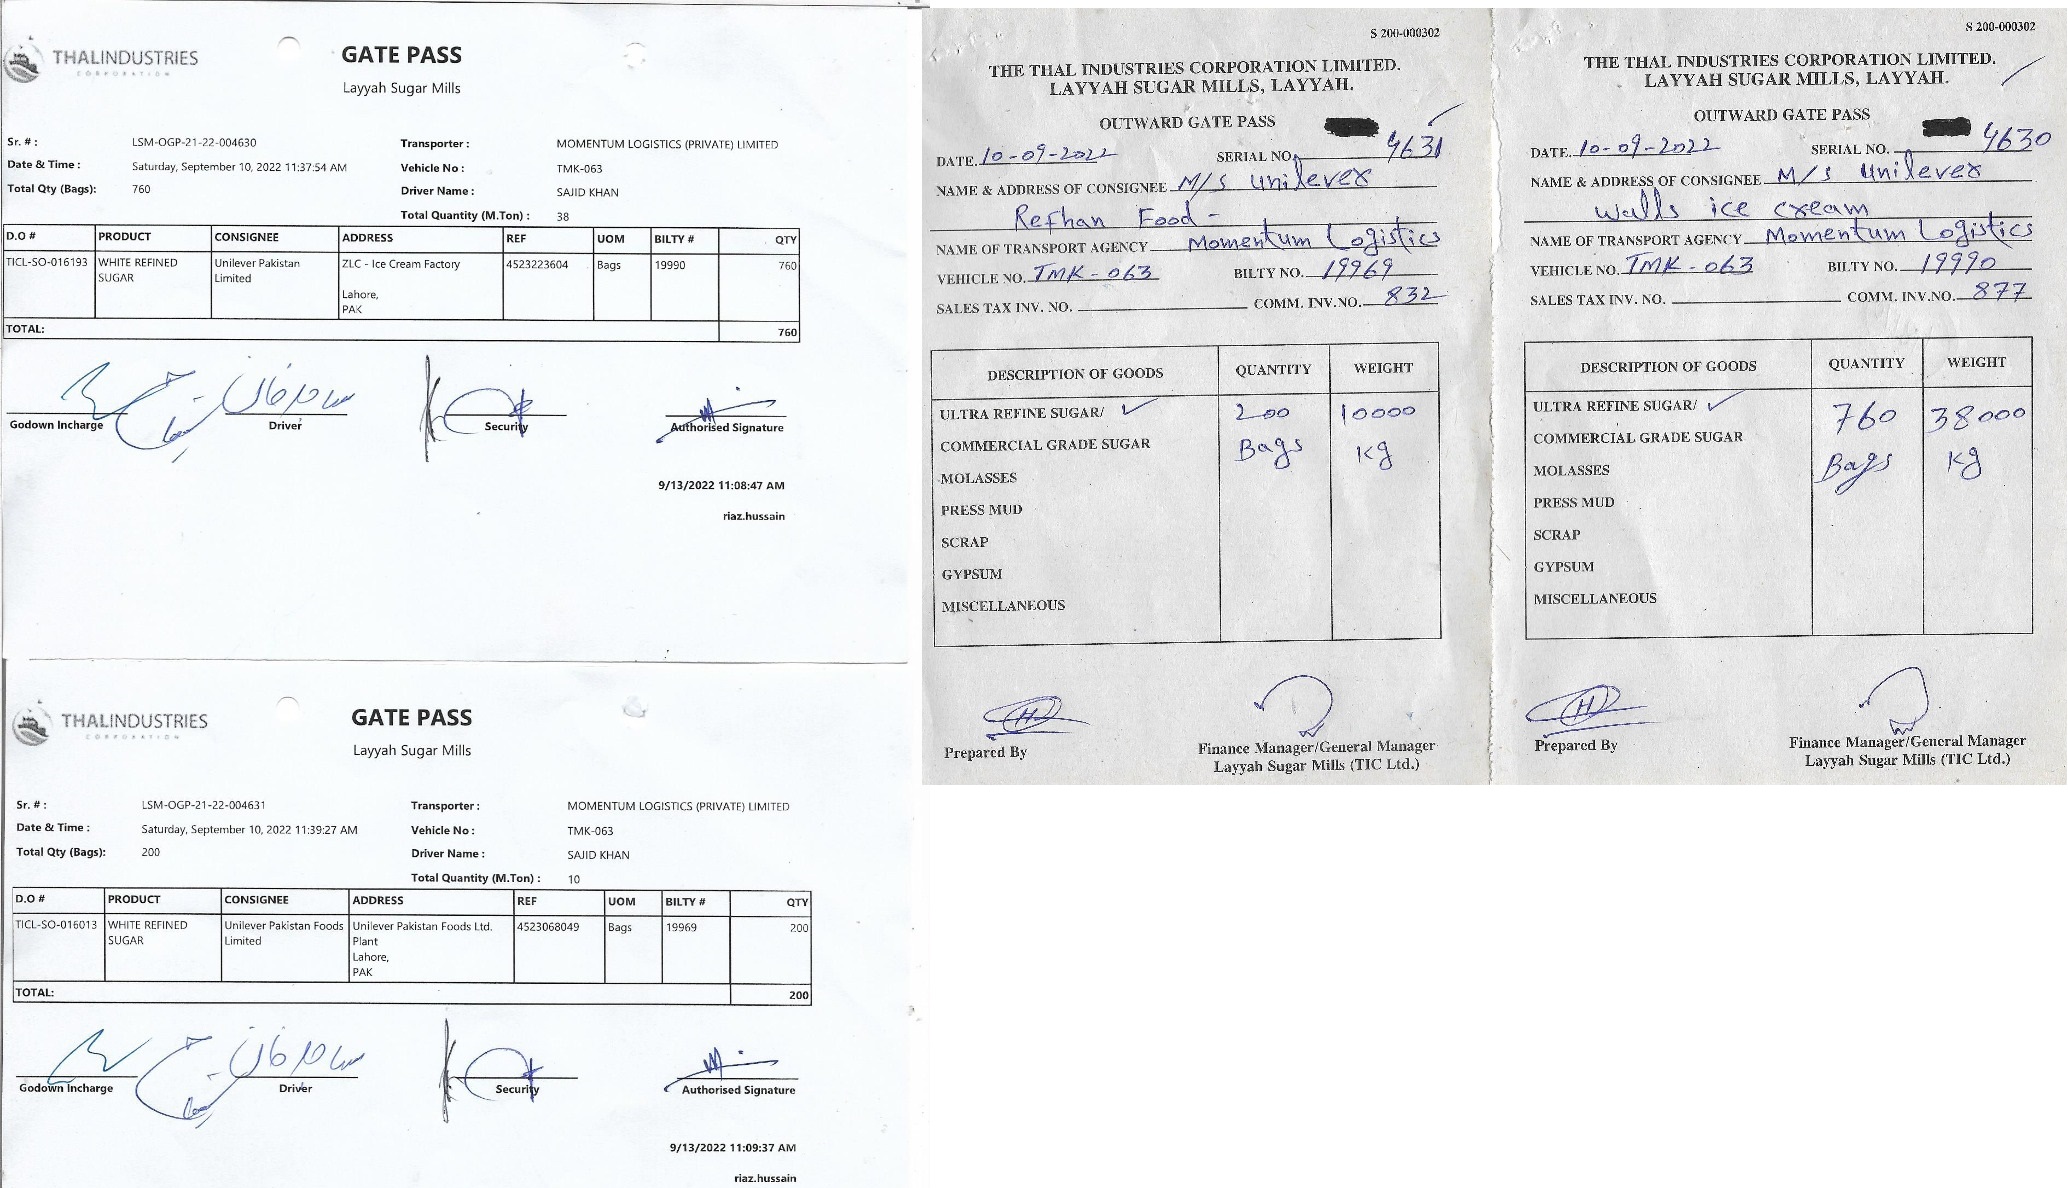 THALINDUSTRIES
CORPORATION
GATE PASS
Layyah Sugar Mills
Sr. # : LSM-OGP-21-22-004630 Transporter : MOMENTUM LOGISTICS (PRIVATE) LIMITED
Date & Time : Saturday, September 10, 2022 11:37:54 AM Vehicle No : TMK-063
Total Qty (Bags): 760 Driver Name : SAJID KHAN
Total Quantity (M.Ton) : 38
D.O # PRODUCT CONSIGNEE ADDRESS REF UOM BILTY # QTY
TICL-SO-016193 WHITE REFINED Unilever Pakistan ZLC - Ice Cream Factory 4523223604 Bags 19990 760
SUGAR Limited
Lahore,
PAK
TOTAL: 760
ساجد خان
Godown Incharge Driver Security Authorised Signature
9/13/2022 11:08:47 AM
riaz.hussain
THALINDUSTRIES
CORPORATION
GATE PASS
Layyah Sugar Mills
Sr. # : LSM-OGP-21-22-004631 Transporter : MOMENTUM LOGISTICS (PRIVATE) LIMITED
Date & Time : Saturday, September 10, 2022 11:39:27 AM Vehicle No : TMK-063
Total Qty (Bags): 200 Driver Name : SAJID KHAN
Total Quantity (M.Ton) : 10
D.O # PRODUCT CONSIGNEE ADDRESS REF UOM BILTY # QTY
TICL-SO-016013 WHITE REFINED Unilever Pakistan Foods Unilever Pakistan Foods Ltd. 4523068049 Bags 19969 200
SUGAR Limited Plant
Lahore,
PAK
TOTAL: 200
ساجد خان
Godown Incharge Driver Security Authorised Signature
9/13/2022 11:09:37 AM
riaz.hussain
S 200-000302
THE THAL INDUSTRIES CORPORATION LIMITED.
LAYYAH SUGAR MILLS, LAYYAH.
OUTWARD GATE PASS
DATE. 10-09-2022 SERIAL NO. 4631
NAME & ADDRESS OF CONSIGNEE M/s Unilever
Refhan Food -
NAME OF TRANSPORT AGENCY Momentum Logistics
VEHICLE NO. TMK - 063 BILTY NO. 19969
SALES TAX INV. NO. COMM. INV.NO. 832
DESCRIPTION OF GOODS QUANTITY WEIGHT
ULTRA REFINE SUGAR/ ✓ 200 10000
COMMERCIAL GRADE SUGAR Bags Kg
MOLASSES
PRESS MUD
SCRAP
GYPSUM
MISCELLANEOUS
Prepared By Finance Manager/General Manager
Layyah Sugar Mills (TIC Ltd.)
S 200-000302
THE THAL INDUSTRIES CORPORATION LIMITED.
LAYYAH SUGAR MILLS, LAYYAH.
OUTWARD GATE PASS
DATE. 10-09-2022 SERIAL NO. 4630
NAME & ADDRESS OF CONSIGNEE M/s Unilever
Walls ice cream
NAME OF TRANSPORT AGENCY Momentum Logistics
VEHICLE NO. TMK - 063 BILTY NO. 19990
SALES TAX INV. NO. COMM. INV.NO. 877
DESCRIPTION OF GOODS QUANTITY WEIGHT
ULTRA REFINE SUGAR/ ✓ 760 38000
COMMERCIAL GRADE SUGAR Bags Kg
MOLASSES
PRESS MUD
SCRAP
GYPSUM
MISCELLANEOUS
Prepared By Finance Manager/General Manager
Layyah Sugar Mills (TIC Ltd.)